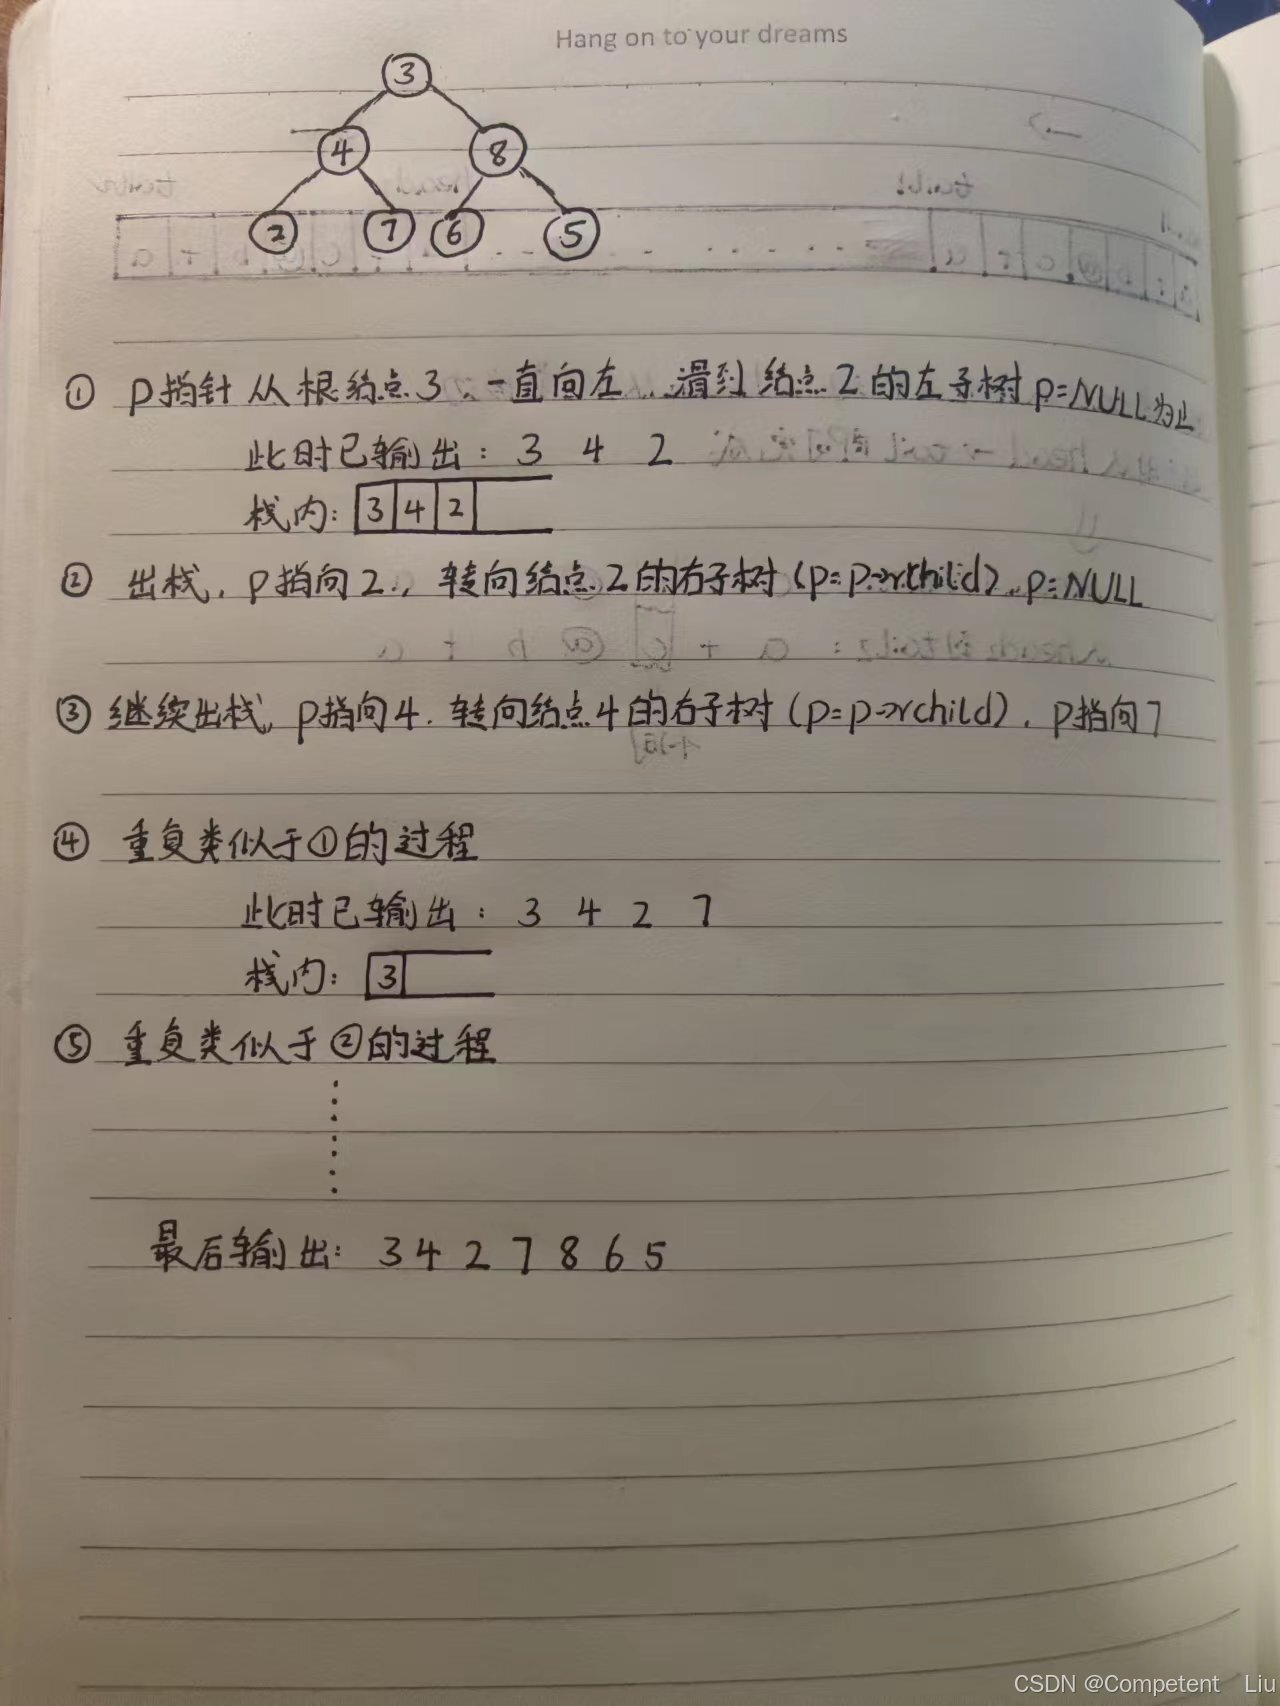 Hang on to your dreams
3
4 8
2 7 6 5
① P指针从根结点3，一直向左，滑到结点2的左子树p=NULL为止
此时已输出：3 4 2
栈内：3 4 2
② 出栈，p指向2，转向结点2的右子树（p=p->rchild），p=NULL
③ 继续出栈，p指向4，转向结点4的右子树（p=p->rchild），p指向7
④ 重复类似于①的过程
此时已输出：3 4 2 7
栈内：3
⑤ 重复类似于②的过程
最后输出：3 4 2 7 8 6 5
CSDN @Competent Liu